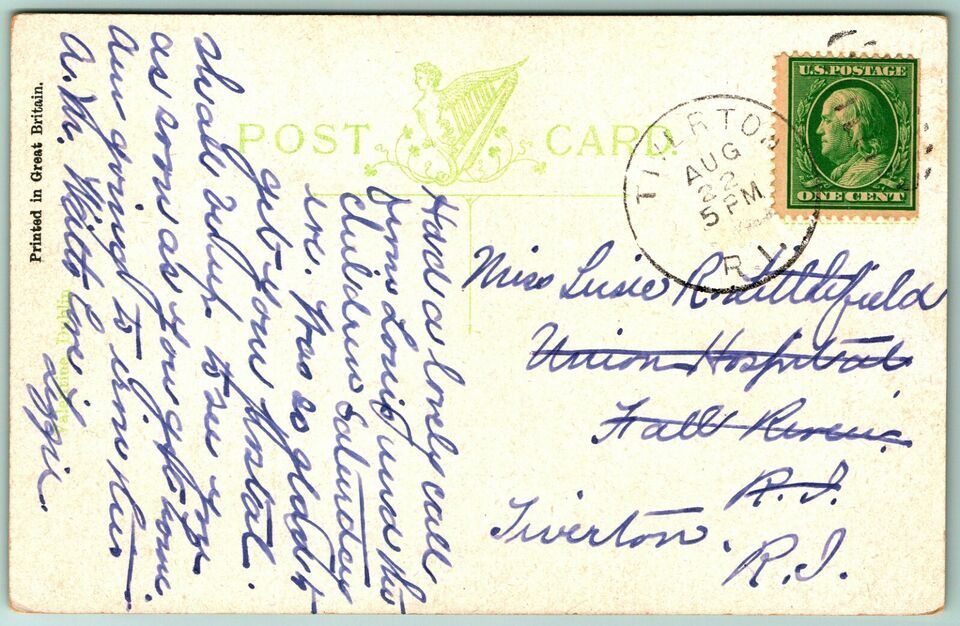 Printed in Great Britain.
POST CARD.
Valentine Dublin
TIVERTON
AUG
22
5 PM
R.I.
U.S. POSTAGE
ONE CENT
Miss Susie R. Littlefield
Union Hospital
Fall River
R.I.
Tiverton.
R.I.
Had a lovely call
from Louis and the
children Saturday
ive. Was so glad to
get your postal.
Shall to see you
as soon as you get home.
Am going to iron this
a. m. With love
Lizzie.